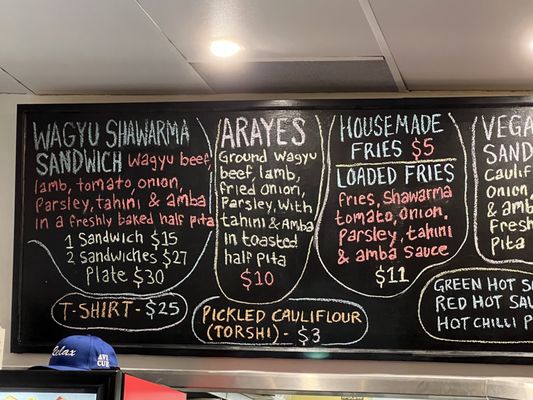 WAGYU SHAWARMA
SANDWICH Wagyu beef,
lamb, tomato, onion,
Parsley, tahini & amba
in a freshly baked half pita
1 Sandwich $15
2 Sandwiches $27
Plate $30
T-SHIRT - $25
ARAYES
Ground Wagyu
beef, lamb,
fried onion,
Parsley, with
tahini & Amba
in toasted
half pita
$10
PICKLED CAULIFLOUR
(TORSHI) - $3
HOUSEMADE
FRIES $5
LOADED FRIES
fries, Shawarma
tomato, onion,
Parsley, tahini
& amba sauce
$11
VEGA
SAND
Caulif
onion,
& amb
fresh
Pita
GREEN HOT SAU
RED HOT SAU
HOT CHILLI P
Relax
AVI
CUE